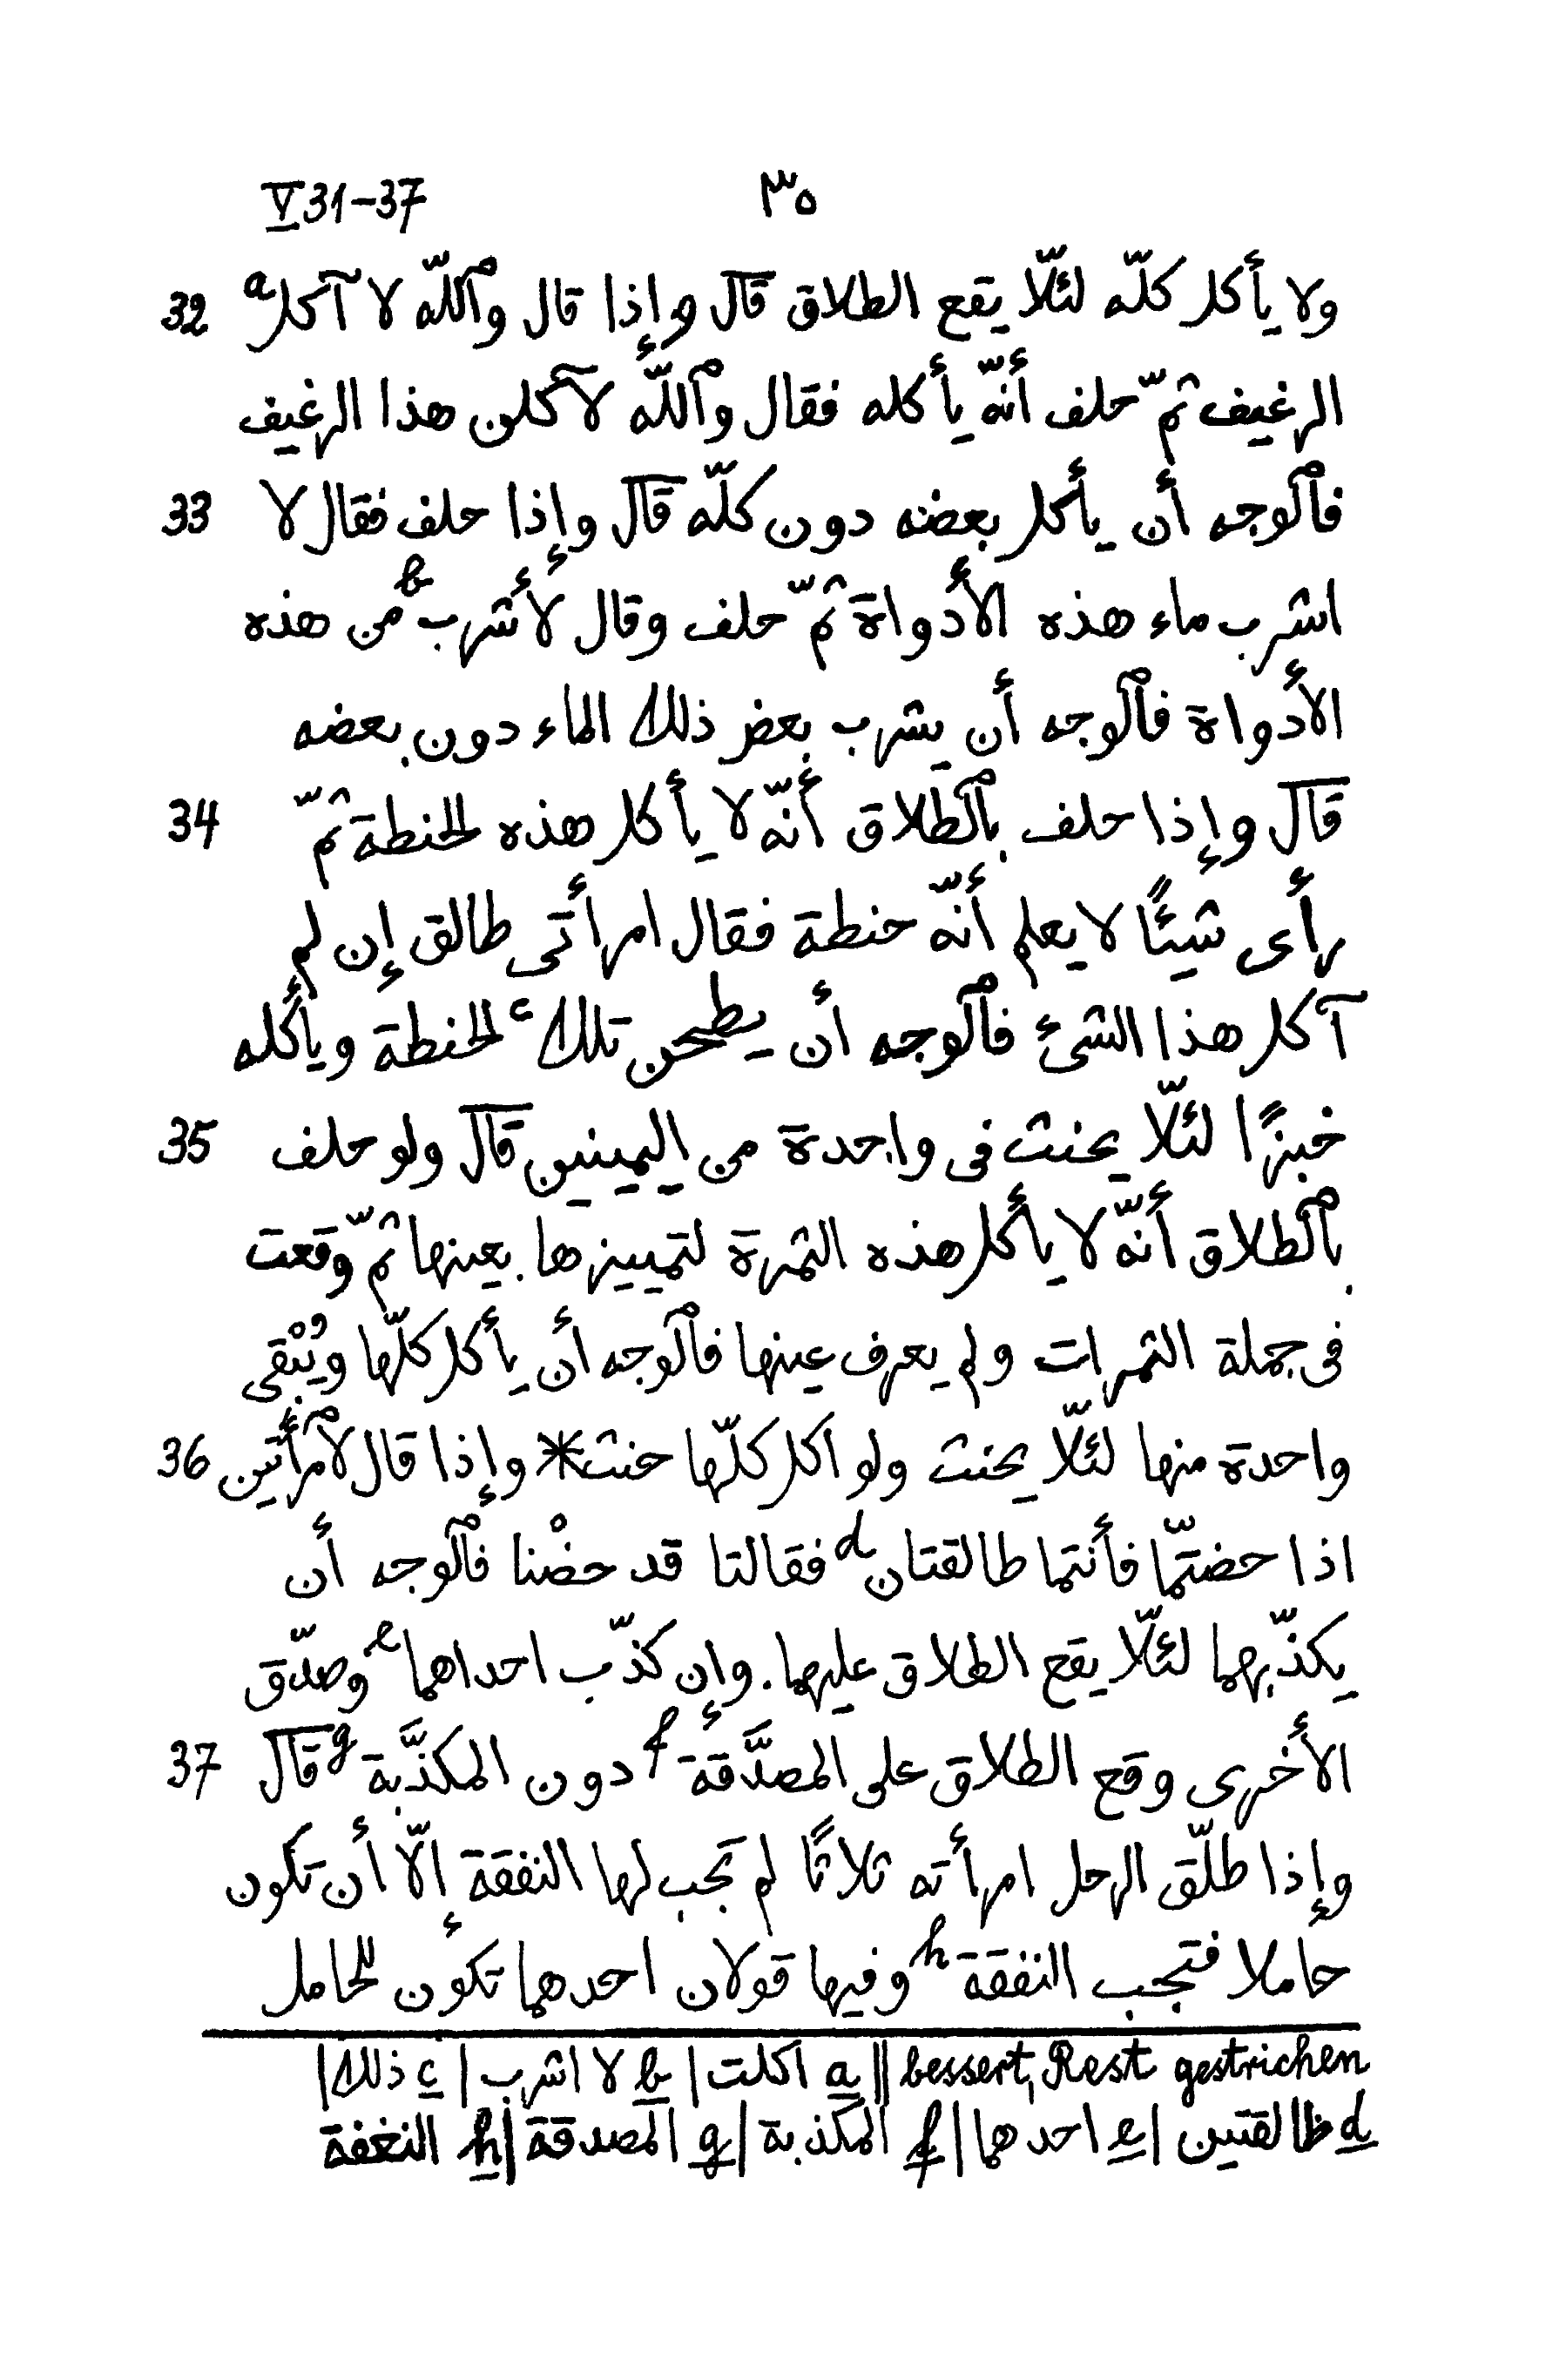 V 31-37 ٣٥
ولا يأكل كلّه لئلّا يقع الطلاق قال وإذا قال وٱللّه لا آكل a 32
الرغيف ثمّ حلف أنّه يأكله فقال وٱللّه لآكلن هذا الرغيف
فٱلوجه أن يأكل بعضه دون كلّه قال وإذا حلف فقال لا 33
اشرب ماء هذه الأدواة ثمّ حلف وقال لأشرب b من هذه
الأدواة فٱلوجه أن يشرب بعض ذلك الماء دون بعضه
قال وإذا حلف بٱلطلاق أنّه لا يأكل هذه الحنطة ثمّ 34
رأى شيئًا لا يعلم أنّه حنطة فقال امرأتى طالق إن لم
آكل هذا الشئ فٱلوجه أن يطحن تلك c الحنطة ويأكله
خبزًا لئلّا يحنث فى واحدة من اليمينين قال ولو حلف 35
بٱلطلاق أنّه لا يأكل هذه الثمرة لتمييزها بعينها ثمّ وقعت
فى جملة الثمرات ولم يعرف عينها فٱلوجه أن يأكل كلّها ويُبْقى
واحدة منها لئلّا يحنث ولو اكل كلّها حنث * وإذا قال لٱمرأتين 36
اذا حضتمّا فأنتما طالقتان d فقالتا قد حضْنا فٱلوجه أن
يكذّبهما لئلّا يقع الطلاق عليهما. وإن كذّب احداهما e وصدّق
الأخرى وقع الطلاق على المصدَّقة f دون المكذَّبة g قال 37
وإذا طلّق الرحل امرأته ثلاثًا لم تجب لها النفقة إلّا أن تكون
حاملا فتجب النفقة h وفيها قولان احدهما تكون للحامل
bessert, Rest gestrichen || a اكلت | b لا اشرب | c ذلك |
d طالقتين | e احدهما | f المكذبة | g المصدقة | h النغفة